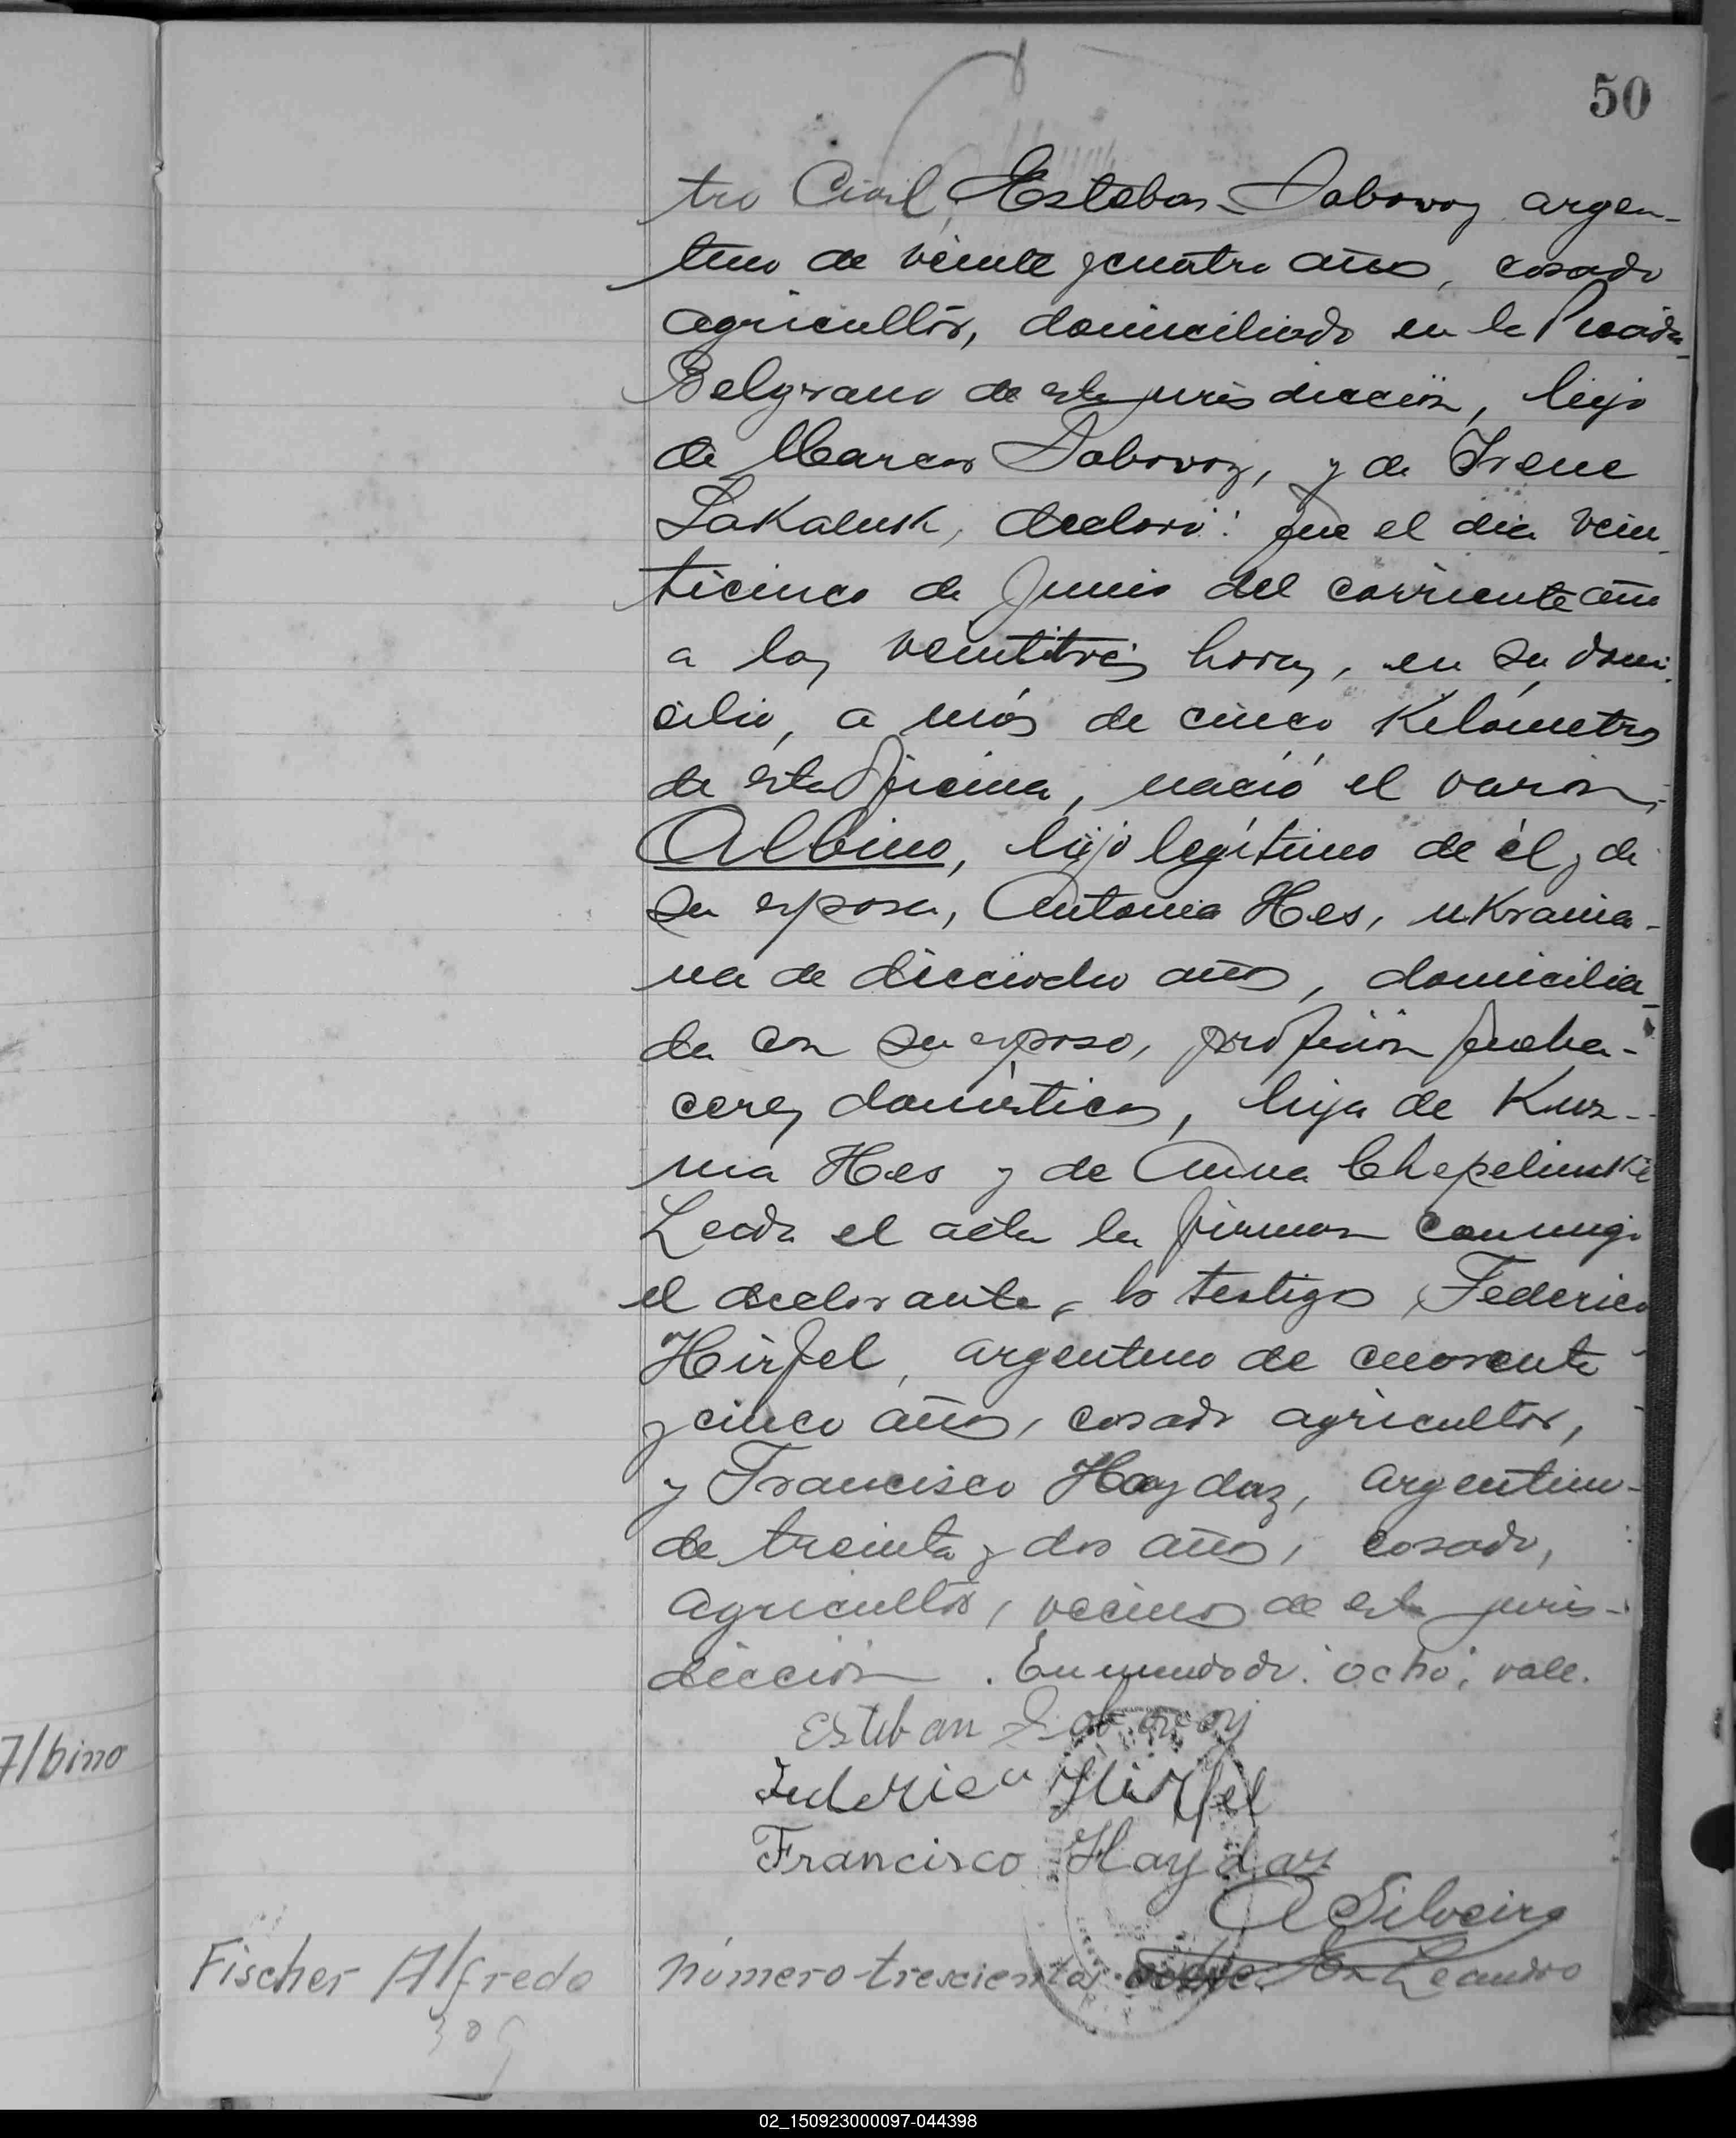 50
tro Civil, Esteban Dobovoy argen-
tino de veinte y cuatro años, casado
agricultor, domiciliado en la Picada
Belgrano de esta jurisdicción, hijo
de Marcos Dobovoy, y de Irene
Lakalusk, declaró: que el dia vein-
ticinco de Junio del corriente año
a las veintitrés horas, en su domi-
cilio, a más de cinco Kilómetros
de esta Oficina, nació el varón,
Albino, hijo legítimo de él y de
su esposa, Antonia Hes, ukrania-
na de dieciocho años, domicilia-
da con su esposo, profesión queha-
ceres domésticos, hija de Kuz-
ma Hes y de Anna Chepelinski
Leida el acta la firman conmigo
el declarante, los testigos Federico
Hirfel, argentino de cuarenta
y cinco años, casado agricultor,
y Francisco Hayduz, argentino
de treinta y dos años, casado,
agricultor, vecinos de esta juris-
dicción. Enmendado: ocho: vale.
Esteban Dobovoy
Albino
Federico Hirfel
Francisco Haydaz
A Silveira
Fischer Alfredo
309
Número trescientos En Leandro
02_150923000097-044398